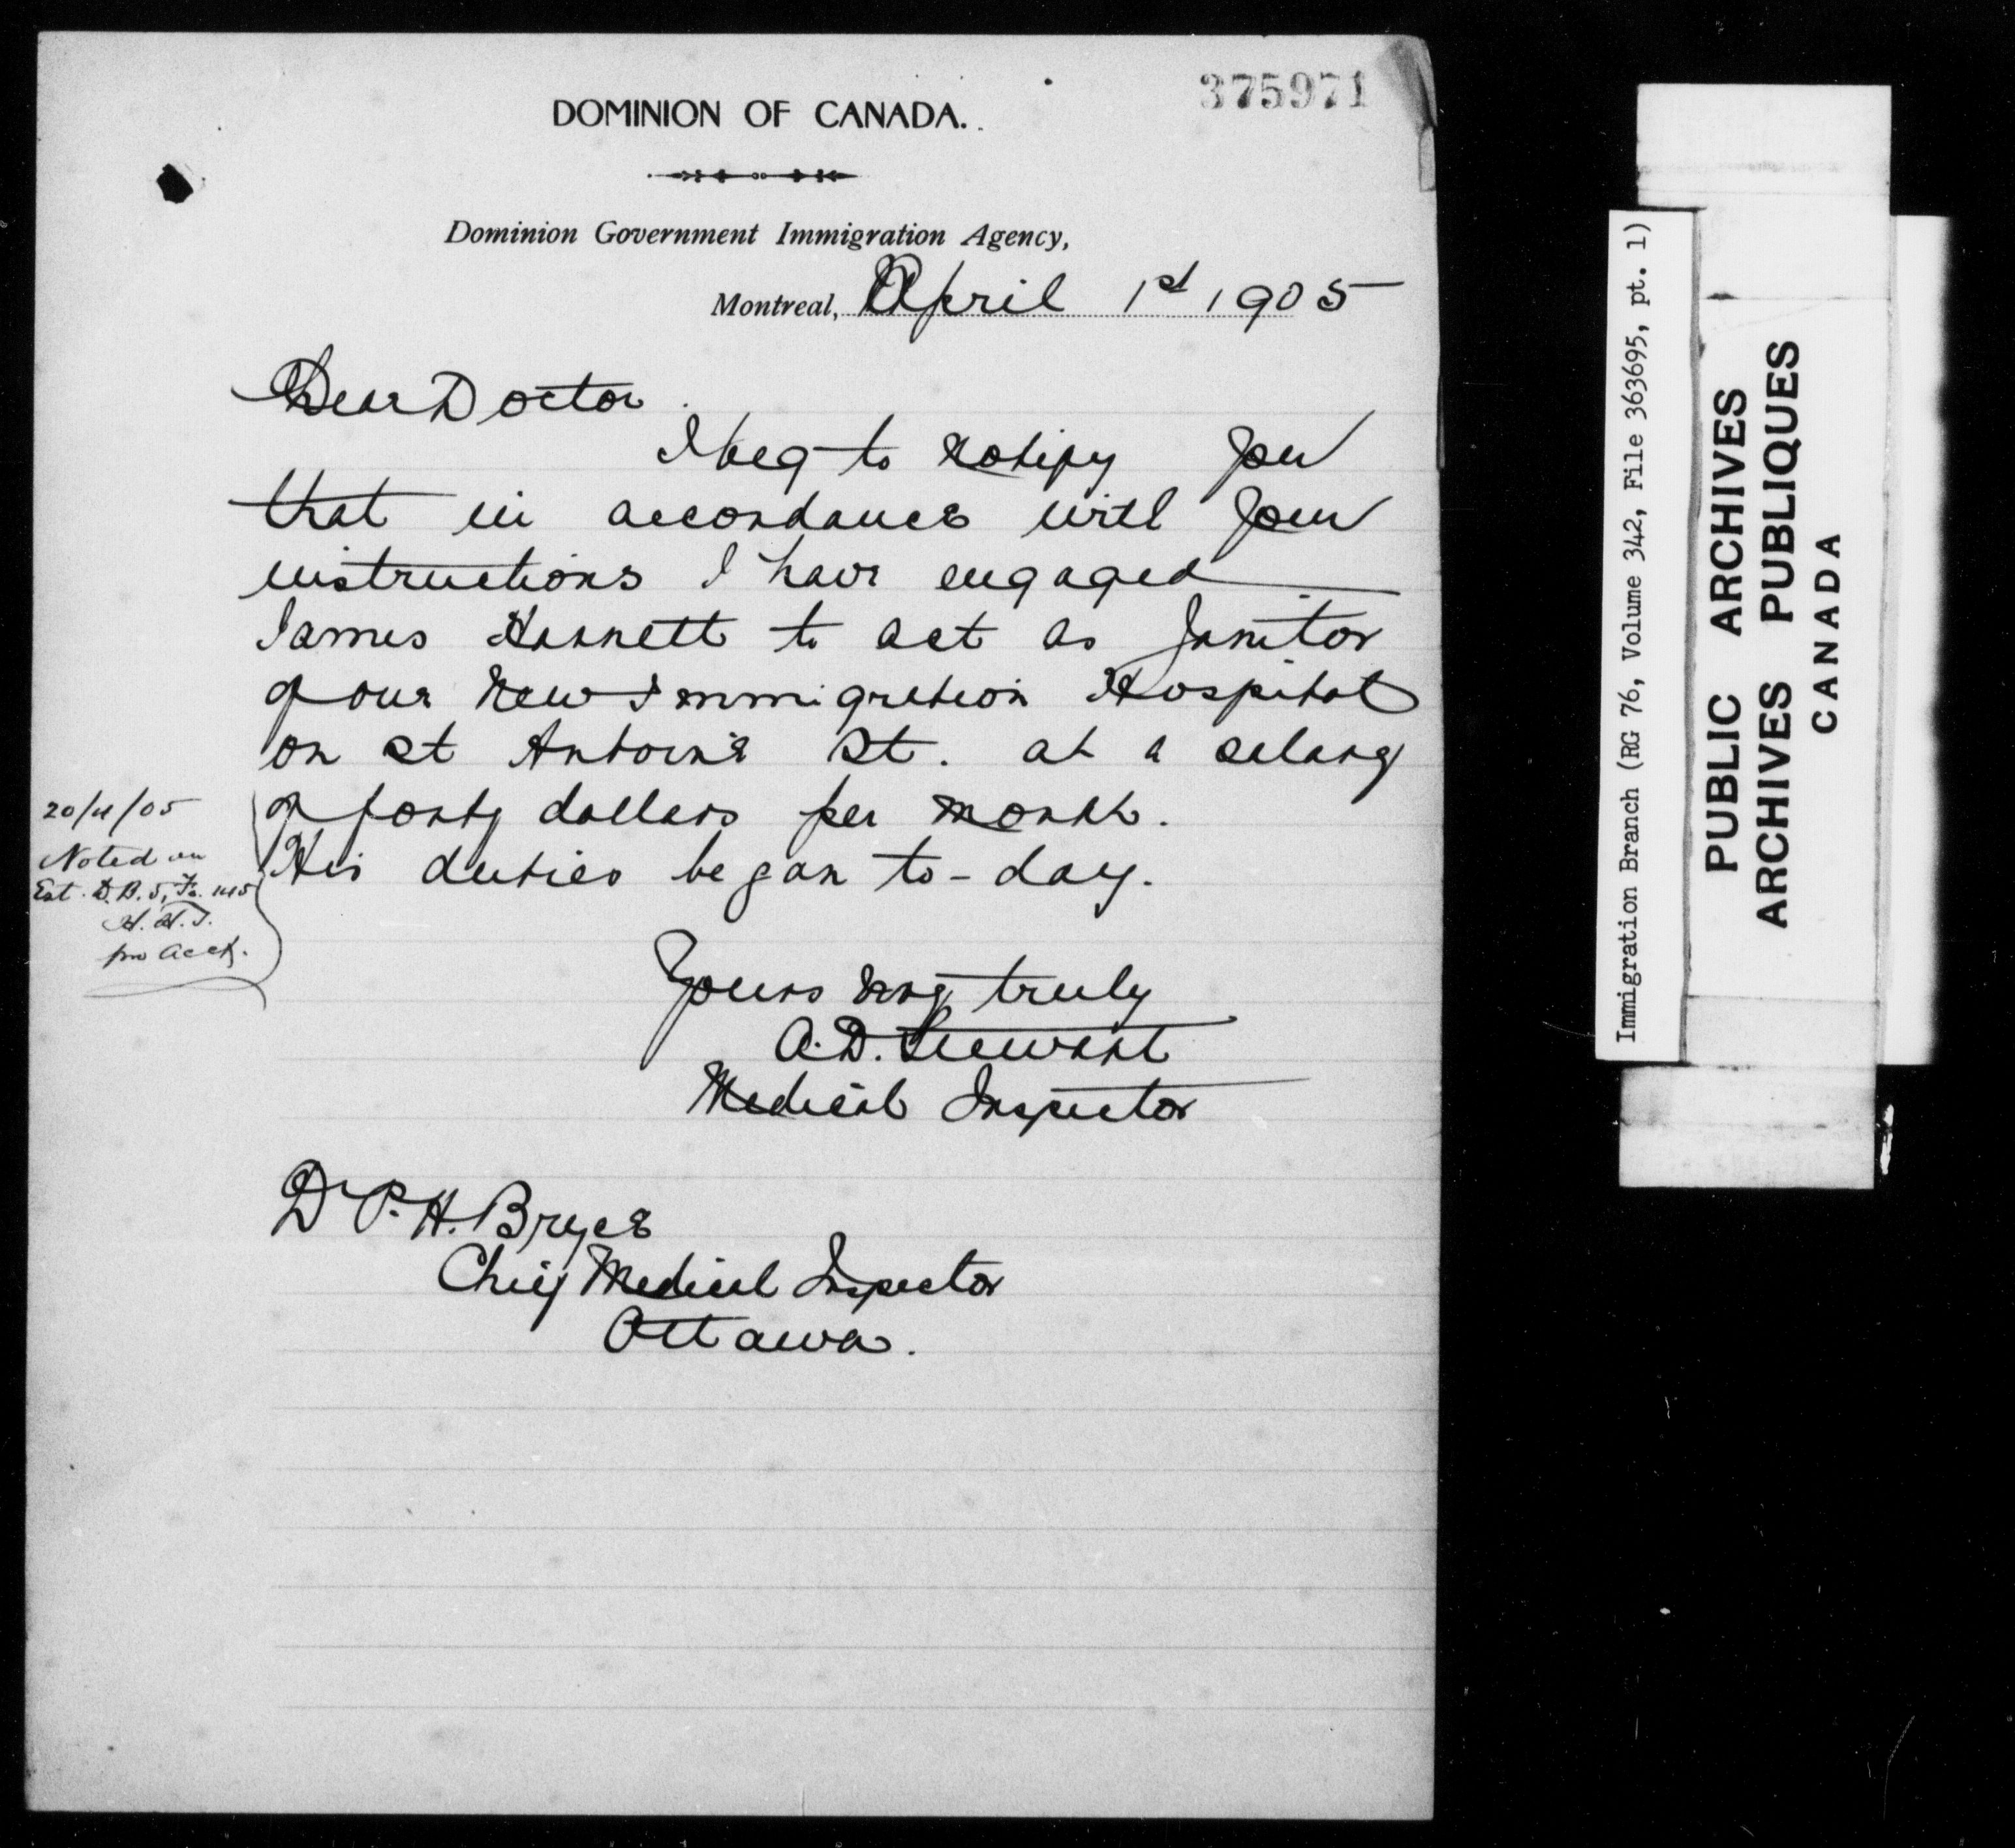 375971
DOMINION OF CANADA.
Dominion Government Immigration Agency,
Montreal, April 1st 1905
Dear Doctor
I beg to notify you
that in accordance with your
instructions I have engaged
James Hannett to act as Janitor
of our New Immigration Hospital
on St Antoine St. at a salary
of forty dollars per month.
His duties began to-day.
20/4/05
Noted on
Est. D.B. 5, Fo.
H.H.T.
pro Acct.
Yours very truly
A.D. Stewart
Medical Inspector
Dr P.H. Bryce
Chief Medical Inspector
Ottawa.
Immigration Branch (RG 76, Volume 342, File 363695, pt. 1)
PUBLIC ARCHIVES
ARCHIVES PUBLIQUES
CANADA